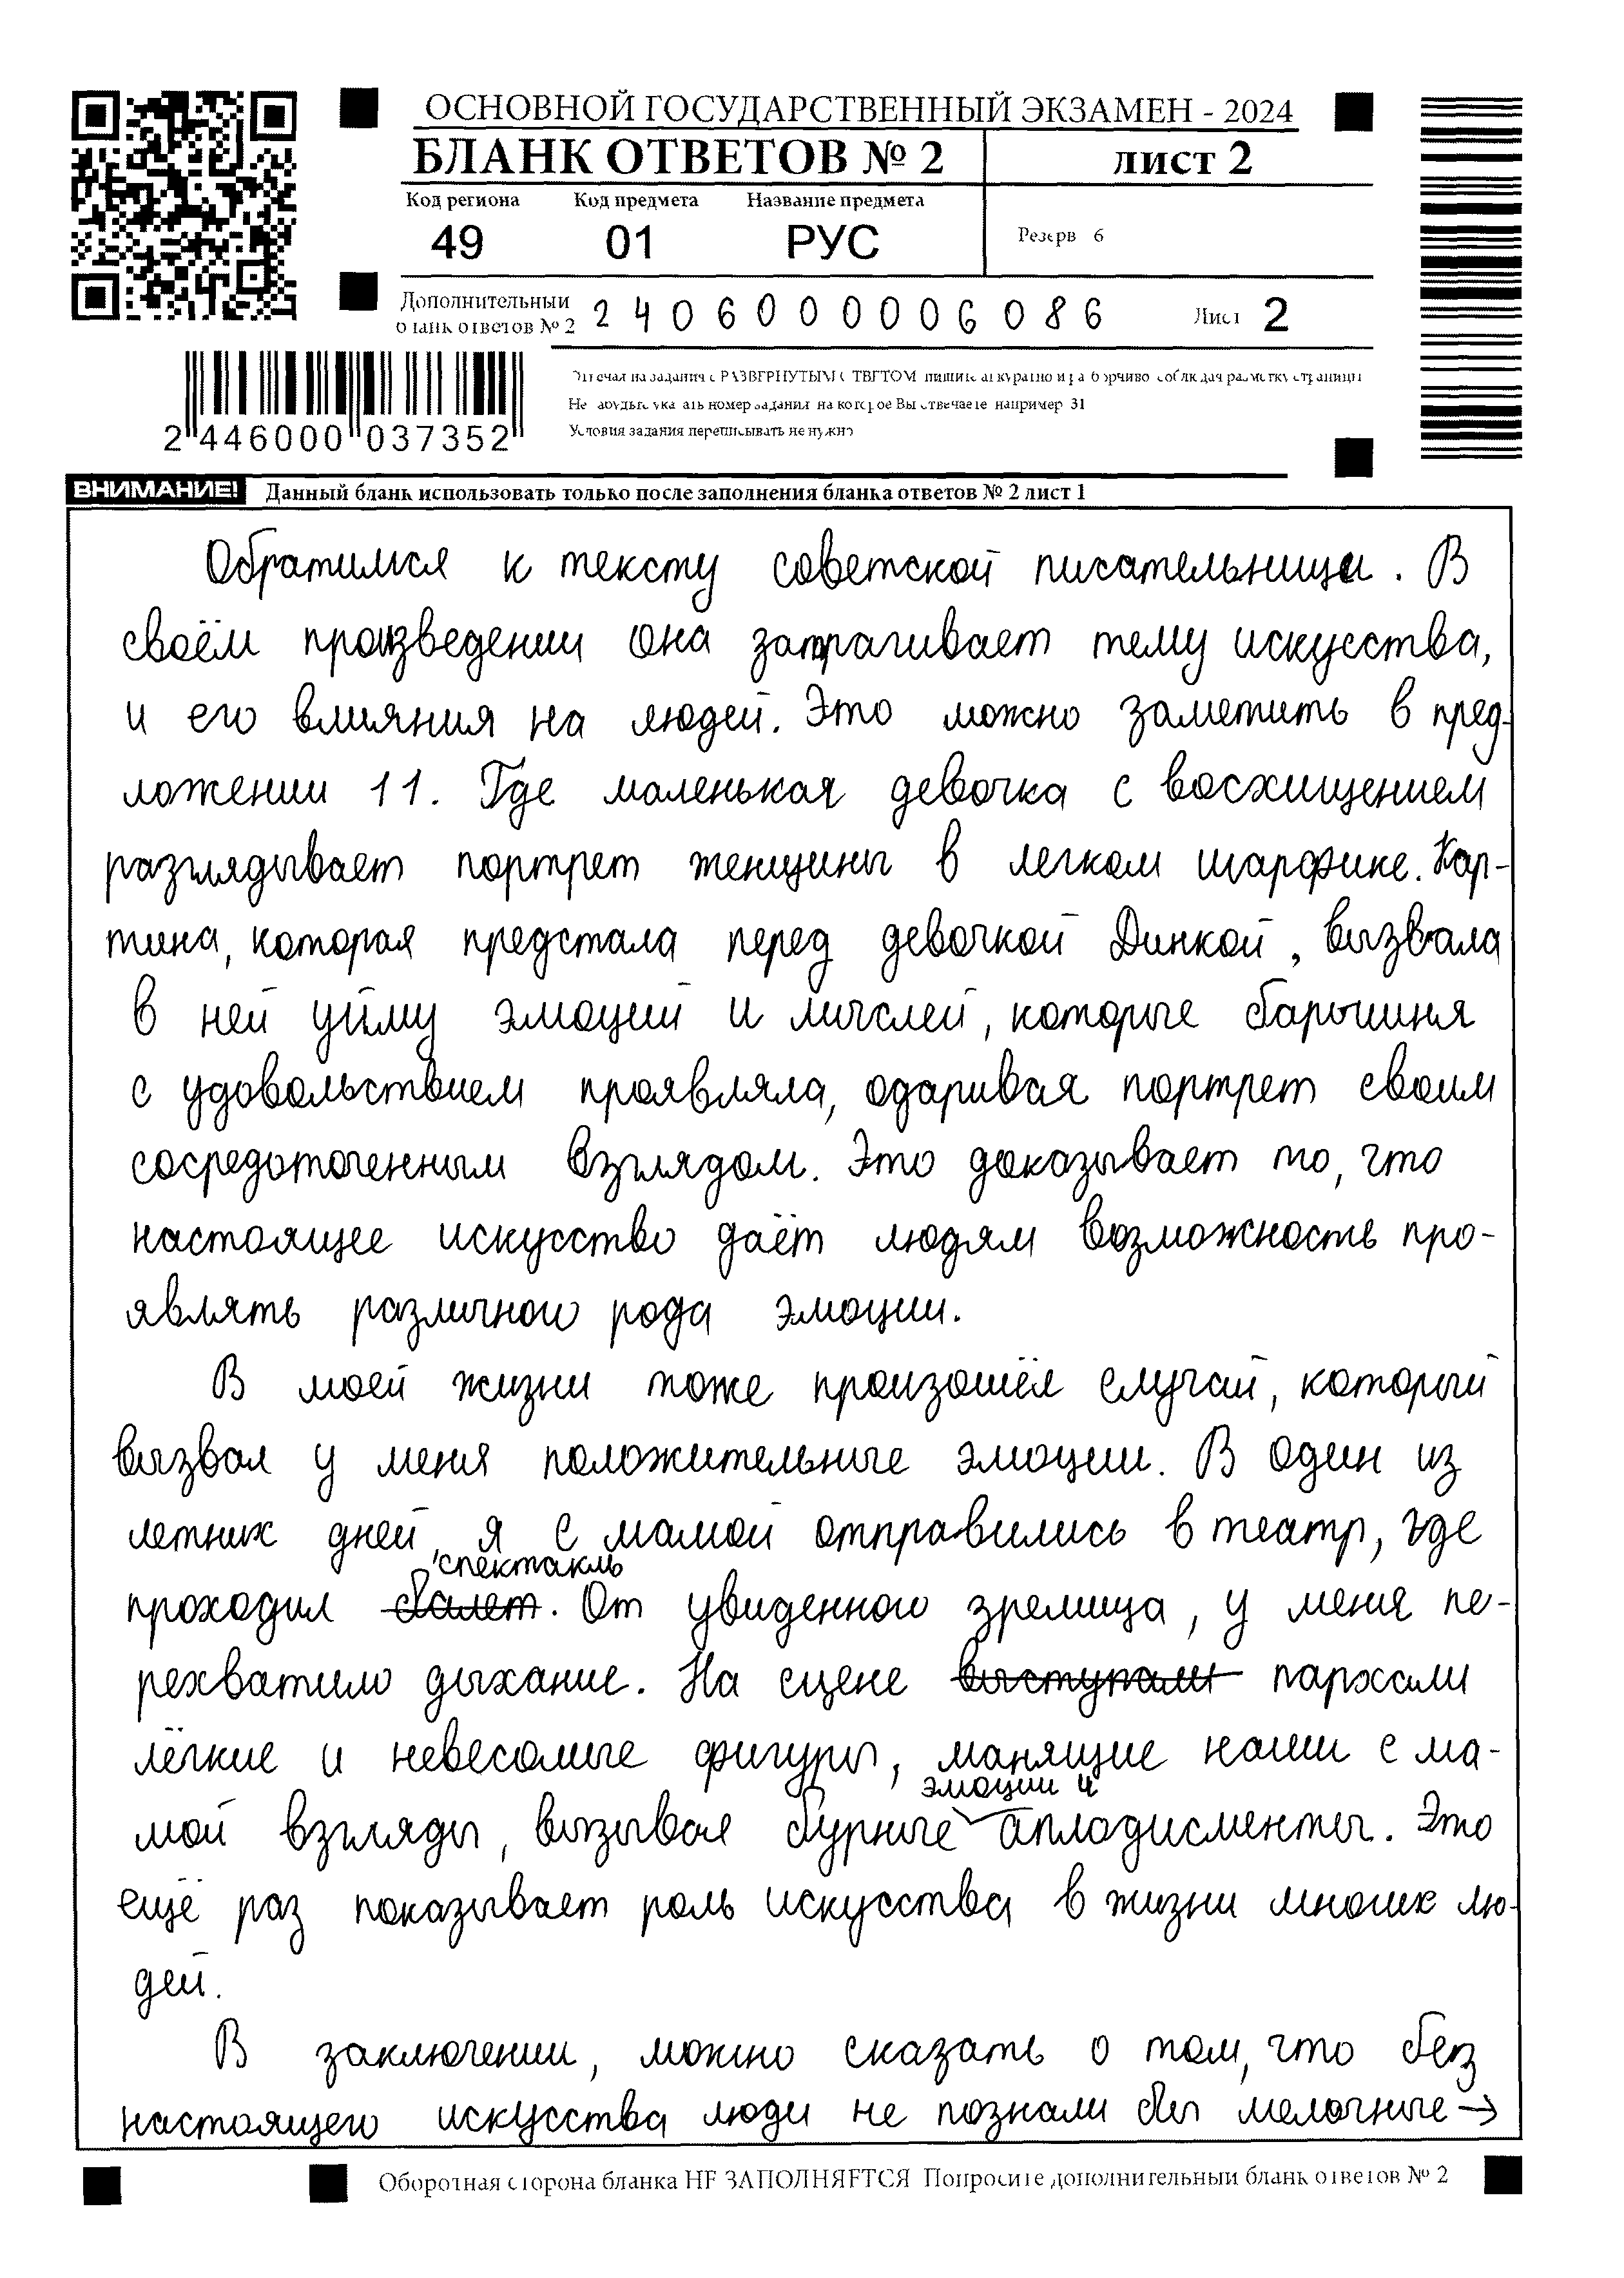 ОСНОВНОЙ ГОСУДАРСТВЕННЫЙ ЭКЗАМЕН - 2024
БЛАНК ОТВЕТОВ № 2
лист 2
Код региона Код предмета Название предмета
49 01 РУС
Резерв 6
Дополнительный
бланк ответов № 2
2406000006086
Лист 2
2 446000 037352
Отвечая на задания с РАЗВЕРНУТЫМ ОТВЕТОМ пишите аккуратно и разборчиво соблюдая разметку страницы
Не забудьте указать номер задания на которое Вы отвечаете например 31
Условия задания переписывать не нужно
ВНИМАНИЕ! Данный бланк использовать только после заполнения бланка ответов № 2 лист 1
Обратимся к тексту советской писательницы. В
своём произведении она затрагивает тему искусства,
и его влияния на людей. Это можно заметить в пред-
ложении 11. Где маленькая девочка с восхищением
разглядывает портрет женщины в легком шарфике. Кар-
тина, которая предстала перед девочкой Динкой, вызвала
в ней уйму эмоций и мыслей, которые барышня
с удовольствием проявляла, одаривая портрет своим
сосредоточенным взглядом. Это доказывает то, что
настоящее искусство даёт людям возможность про-
являть различного рода эмоции.
В моей жизни тоже произошёл случай, который
вызвал у меня положительные эмоции. В один из
летних дней, я с мамой отправились в театр, где
спектакль
проходил балет. От увиденного зрелища, у меня пе-
рехватило дыхание. На сцене выступали пархали
лёгкие и невесомые фигуры, манящие наши с ма-
эмоции и
мой взгляды, вызывая бурные аплодисменты. Это
ещё раз показывает роль искусства в жизни многих лю-
дей.
В заключении, можно сказать о том, что без
настоящего искусства люди не познали бы мелочные →
Оборотная сторона бланка НЕ ЗАПОЛНЯЕТСЯ Попросите дополнительный бланк ответов № 2